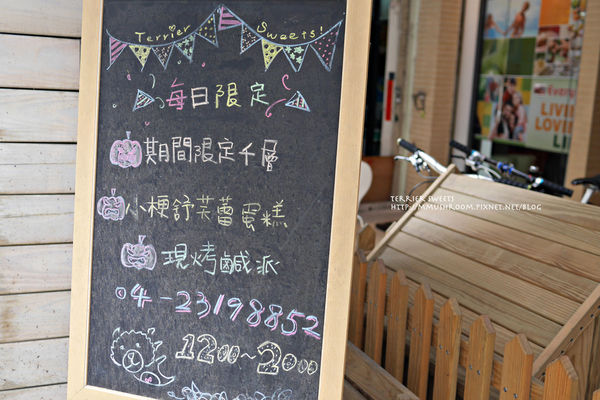 Terrier Sweets!
每日限定
期間限定千層
小梗舒芙蕾蛋糕
現烤鹹派
04-23198852
1200~2000
TERRIER SWEETS
HTTP://MMUSHROOM.PIXNET.NET/BLOG
LIVIN
LOVIN
LIFE